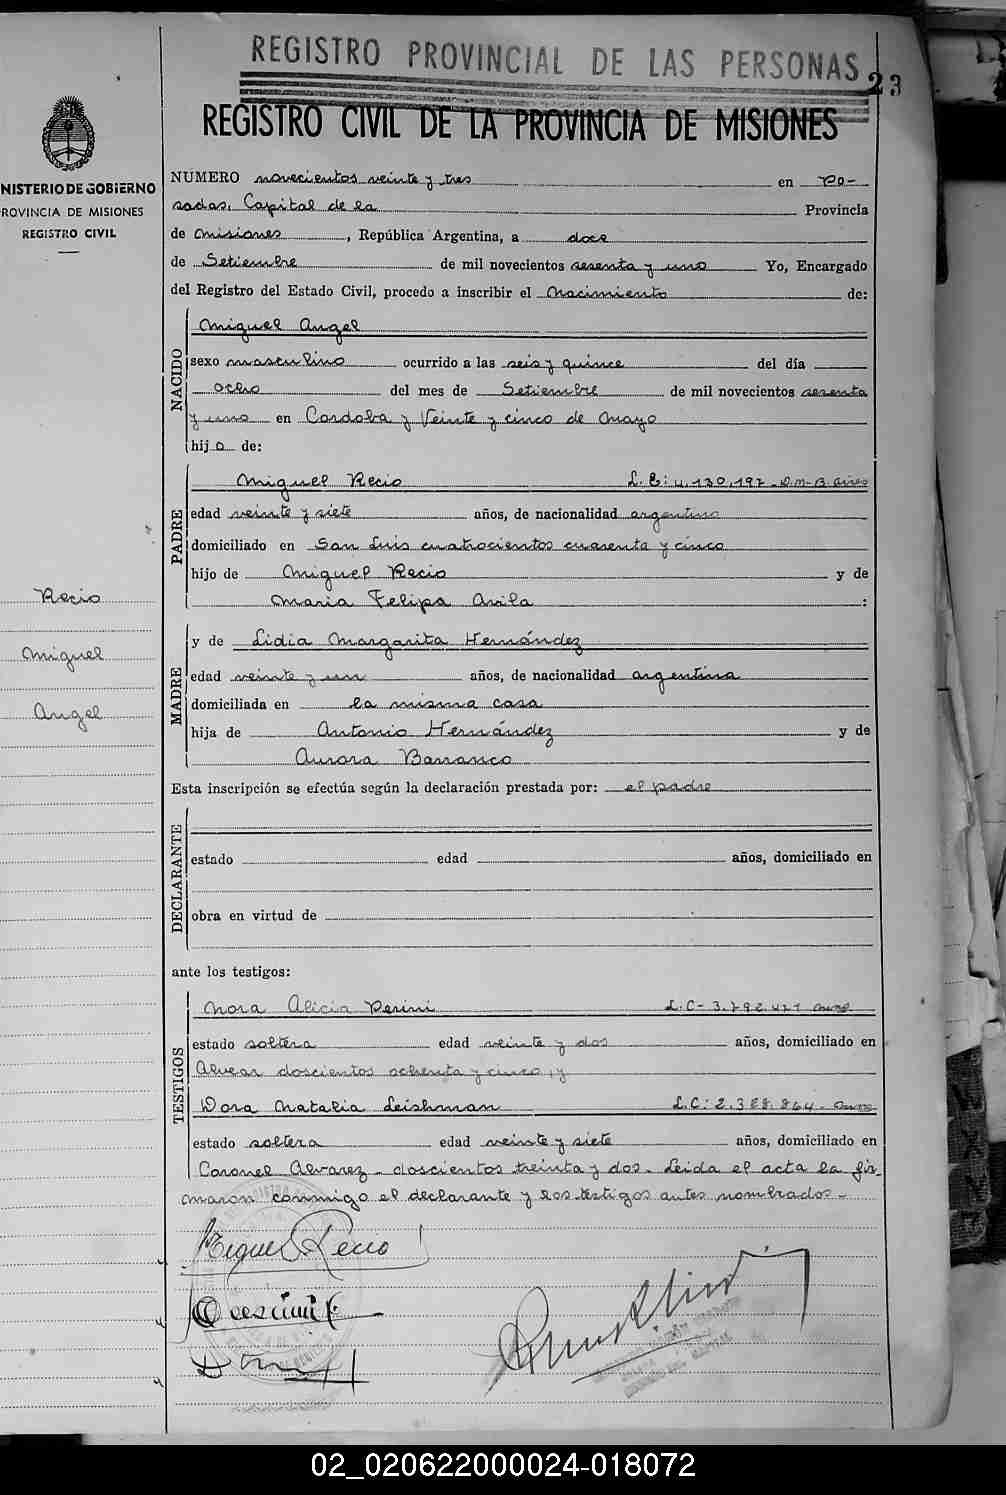 REGISTRO PROVINCIAL DE LAS PERSONAS
23
REGISTRO CIVIL DE LA PROVINCIA DE MISIONES
NISTERIO DE GOBIERNO
ROVINCIA DE MISIONES
REGISTRO CIVIL
NUMERO novecientos veinte y tres en Po-
sadas, Capital de la Provincia
de Misiones, República Argentina, a doce
de Setiembre de mil novecientos sesenta y uno Yo, Encargado
del Registro del Estado Civil, procedo a inscribir el Nacimiento de:
NACIDO
Miguel Angel
sexo masculino ocurrido a las seis y quince del día
ocho del mes de Setiembre de mil novecientos sesenta
y uno en Cordoba y Veinte y cinco de Mayo
hijo de:
PADRE
Miguel Recio L. E: 4.130.197 - D.M- B. Aires
edad veinte y siete años, de nacionalidad argentino
domiciliado en San Luis cuatrocientos cuarenta y cinco
hijo de Miguel Recio y de
Maria Felipa Avila :
Recio
Miguel
Angel
MADRE
y de Lidia Margarita Hernández
edad veinte y un años, de nacionalidad argentina
domiciliada en la misma casa
hija de Antonio Hernández y de
Aurora Barranco
Esta inscripción se efectúa según la declaración prestada por: el padre
DECLARANTE
estado edad años, domiciliado en
obra en virtud de
ante los testigos:
TESTIGOS
Nora Alicia Perini L.C- 3.792.471
estado soltera edad veinte y dos años, domiciliado en
Alvear doscientos ochenta y cinco, y
Dora Natalia Leishman L.C: 2.388.864
estado soltera edad veinte y siete años, domiciliado en
Coronel Alvarez - doscientos treinta y dos. Leida el acta la fir-
maron conmigo el declarante y los testigos antes nombrados -
Miguel Recio
02_020622000024-018072